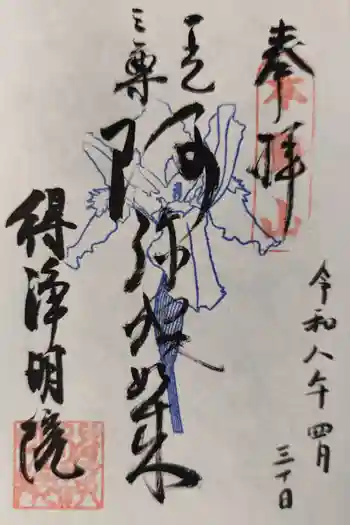 奉拝
一光
三尊
阿弥陀如来
得浄明院
令和八年四月
三十日